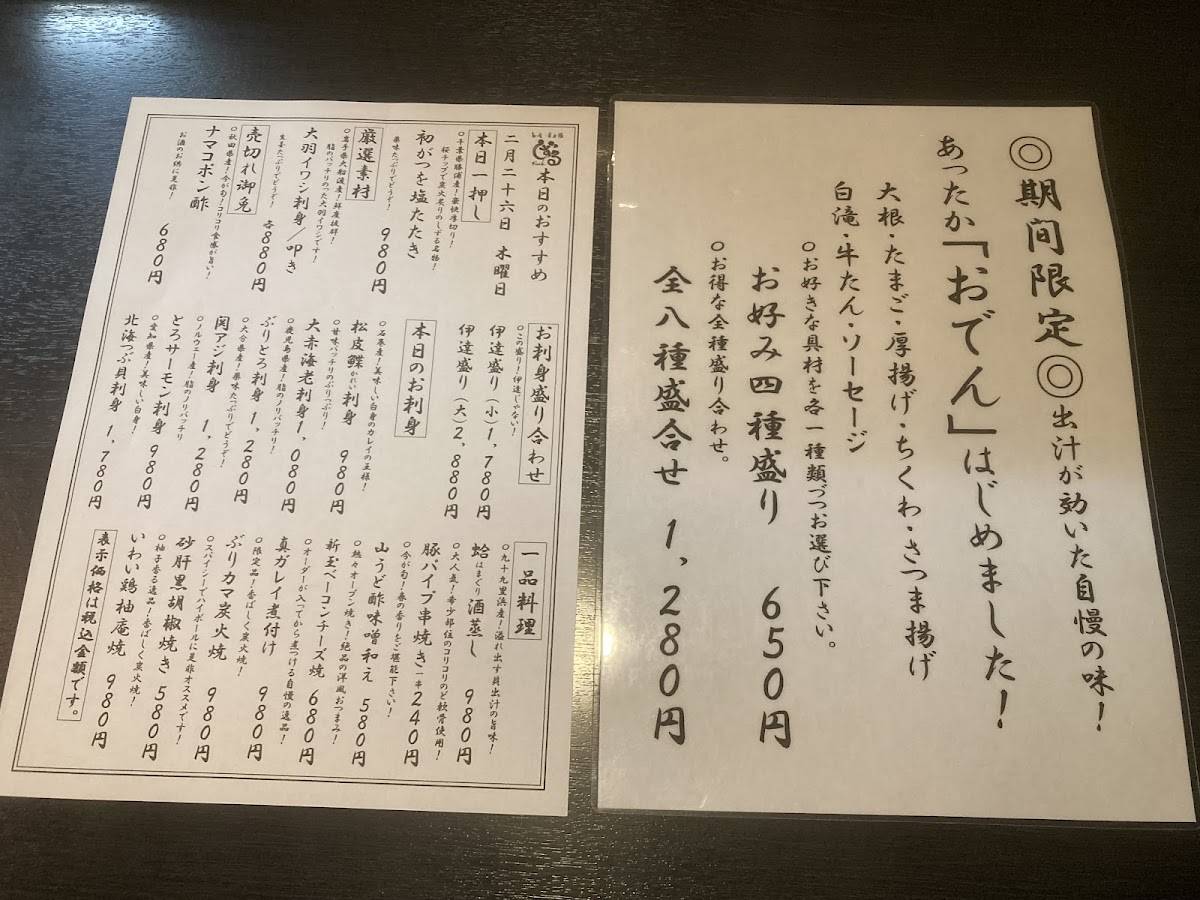 ◎期間限定◎出汁が効いた自慢の味！
あったか「おでん」はじめました！
大根・たまご・厚揚げ・ちくわ・さつま揚げ
白滝・牛たん・ソーセージ
○お好きな具材を各一種類づつお選び下さい。
お好み四種盛り 650円
○お得な全種盛り合わせ。
全八種盛合せ 1,280円
本日のおすすめ
二月二十六日 木曜日
本日一押し
○千葉県勝浦産！豪快厚切り！
桜チップで炭火炙りのしずる名物！
初がつを塩たたき
薬味たっぷりでどうぞ！ 980円
厳選素材
○岩手県大船渡産！鮮度抜群！
脂のバッチリのった大羽イワシです！
大羽イワシ刺身／叩き
生姜たっぷりでどうぞ！ 各880円
売切れ御免
○秋田県産！今が旬！コリコリ食感が旨い！
ナマコポン酢
お酒のお供に是非！ 680円
お刺身盛り合わせ
○この盛り！伊達じゃない！
伊達盛り（小）1,780円
伊達盛り（大）2,880円
本日のお刺身
○石巻産！美味しい白身のカレイの王様！
松皮鰈かれい刺身 980円
○甘味バッチリのぷりっぷり！
大赤海老刺身 1,080円
○鹿児島県産！脂のノリバッチリ！
ぶりとろ刺身 1,280円
○大分県産！薬味たっぷりでどうぞ！
関アジ刺身 1,280円
○ノルウェー産！脂のノリバッチリ
とろサーモン刺身 980円
○愛知県産！美味しい白身！
北海つぶ貝刺身 1,780円
一品料理
○九十九里浜産！溢れ出す貝出汁の旨味！
蛤はまぐり酒蒸し 980円
○大人気！希少部位のコリコリのど軟骨使用！
豚パイプ串焼き一串240円
○今が旬！春の香りをご堪能下さい！
山うど酢味噌和え 580円
○熱々オーブン焼き！絶品の洋風おつまみ！
新玉ベーコンチーズ焼 680円
○オーダーが入ってから煮つける自慢の逸品！
真ガレイ煮付け 980円
○限定品！香ばしく炭火焼！
ぶりカマ炭火焼 980円
○スパイシーでハイボールに是非オススメです！
砂肝黒胡椒焼き 580円
○柚子香る逸品！香ばしく炭火焼！
いわい鶏柚庵焼 980円
表示価格は税込金額です。